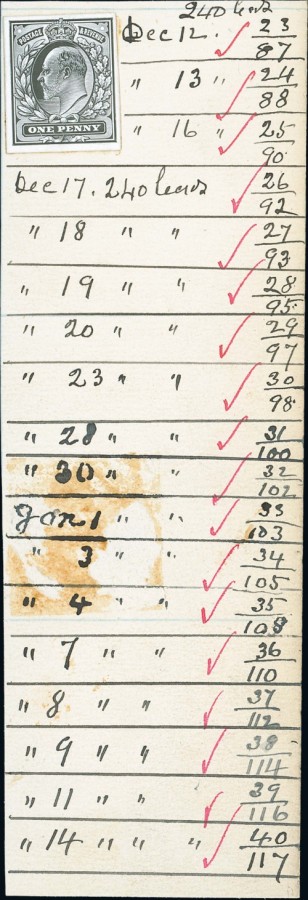 240 leads
Dec 12. 23/87
POSTAGE & REVENUE
ONE PENNY
" 13 " 24/88
" 16 " 25/90
Dec 17. 240 leads 26/92
" 18 " " 27/93
" 19 " " 28/95
" 20 " " 29/97
" 23 " " 30/98
" 28 " " 31/100
" 30 " " 32/102
Jan 1 " " 33/103
" 3 " " 34/105
" 4 " " 35/108
" 7 " " 36/110
" 8 " " 37/112
" 9 " " 38/114
" 11 " " 39/116
" 14 " " " 40/117